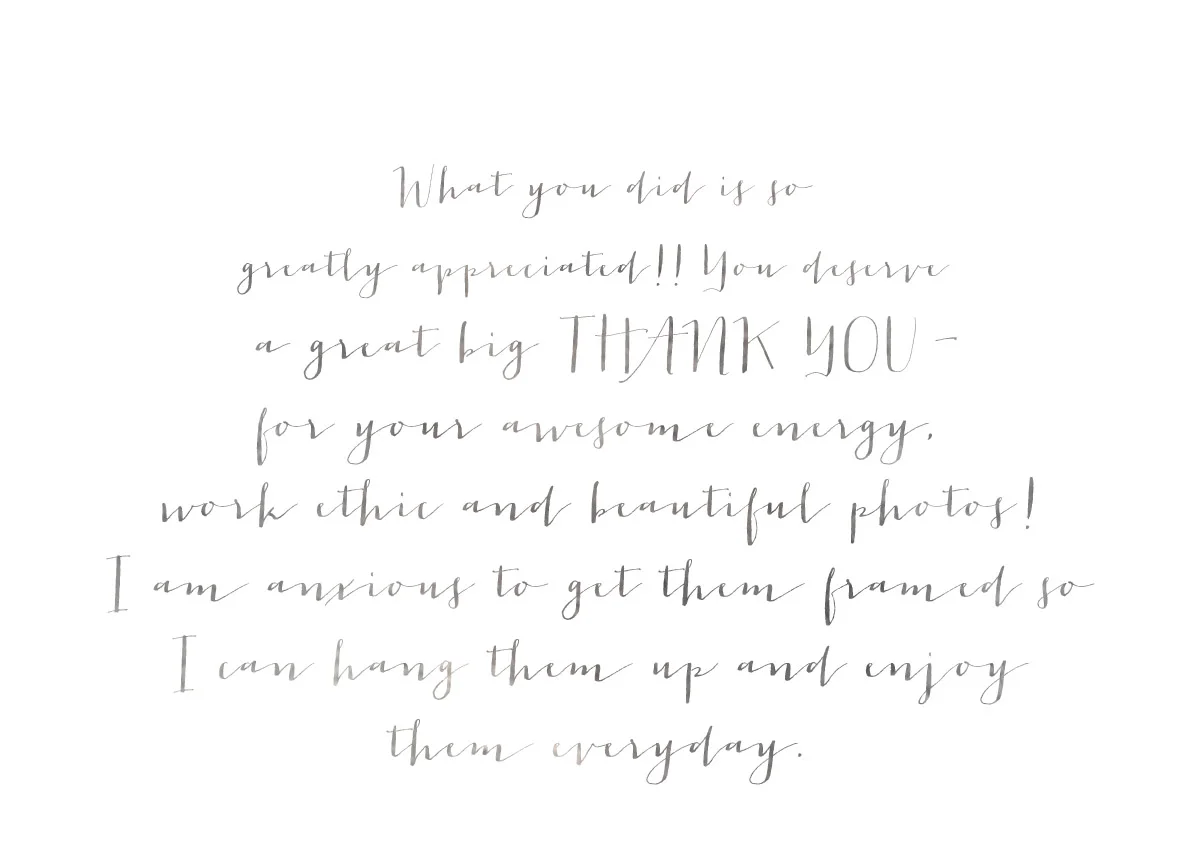 What you did is so
greatly appreciated!! You deserve
a great big THANK YOU -
for your awesome energy,
work ethic and beautiful photos!
I am anxious to get them framed so
I can hang them up and enjoy
them everyday.